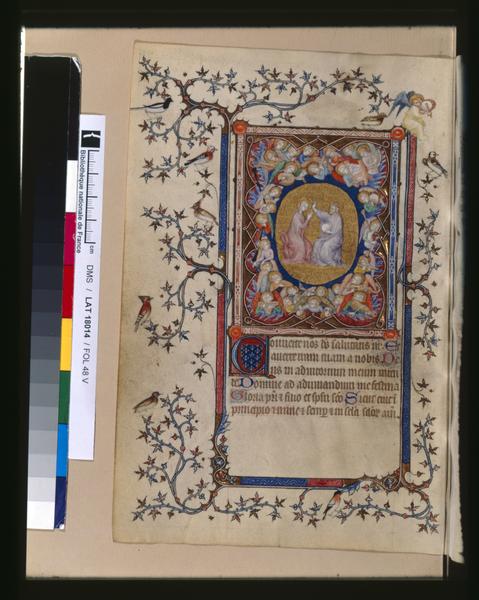 Bibliothèque nationale de France
cm
DMS / LAT 18014 / FOL 48 V
Converte nos ds salutaris nr. E
averte iram tuam a nobis. De
us in adiutorium meum inten
de Domine ad adiuvandum me festina
Gloria pri & filio et spui sco Sicut erat i
principio & nunc & semp & in scla sclor am.